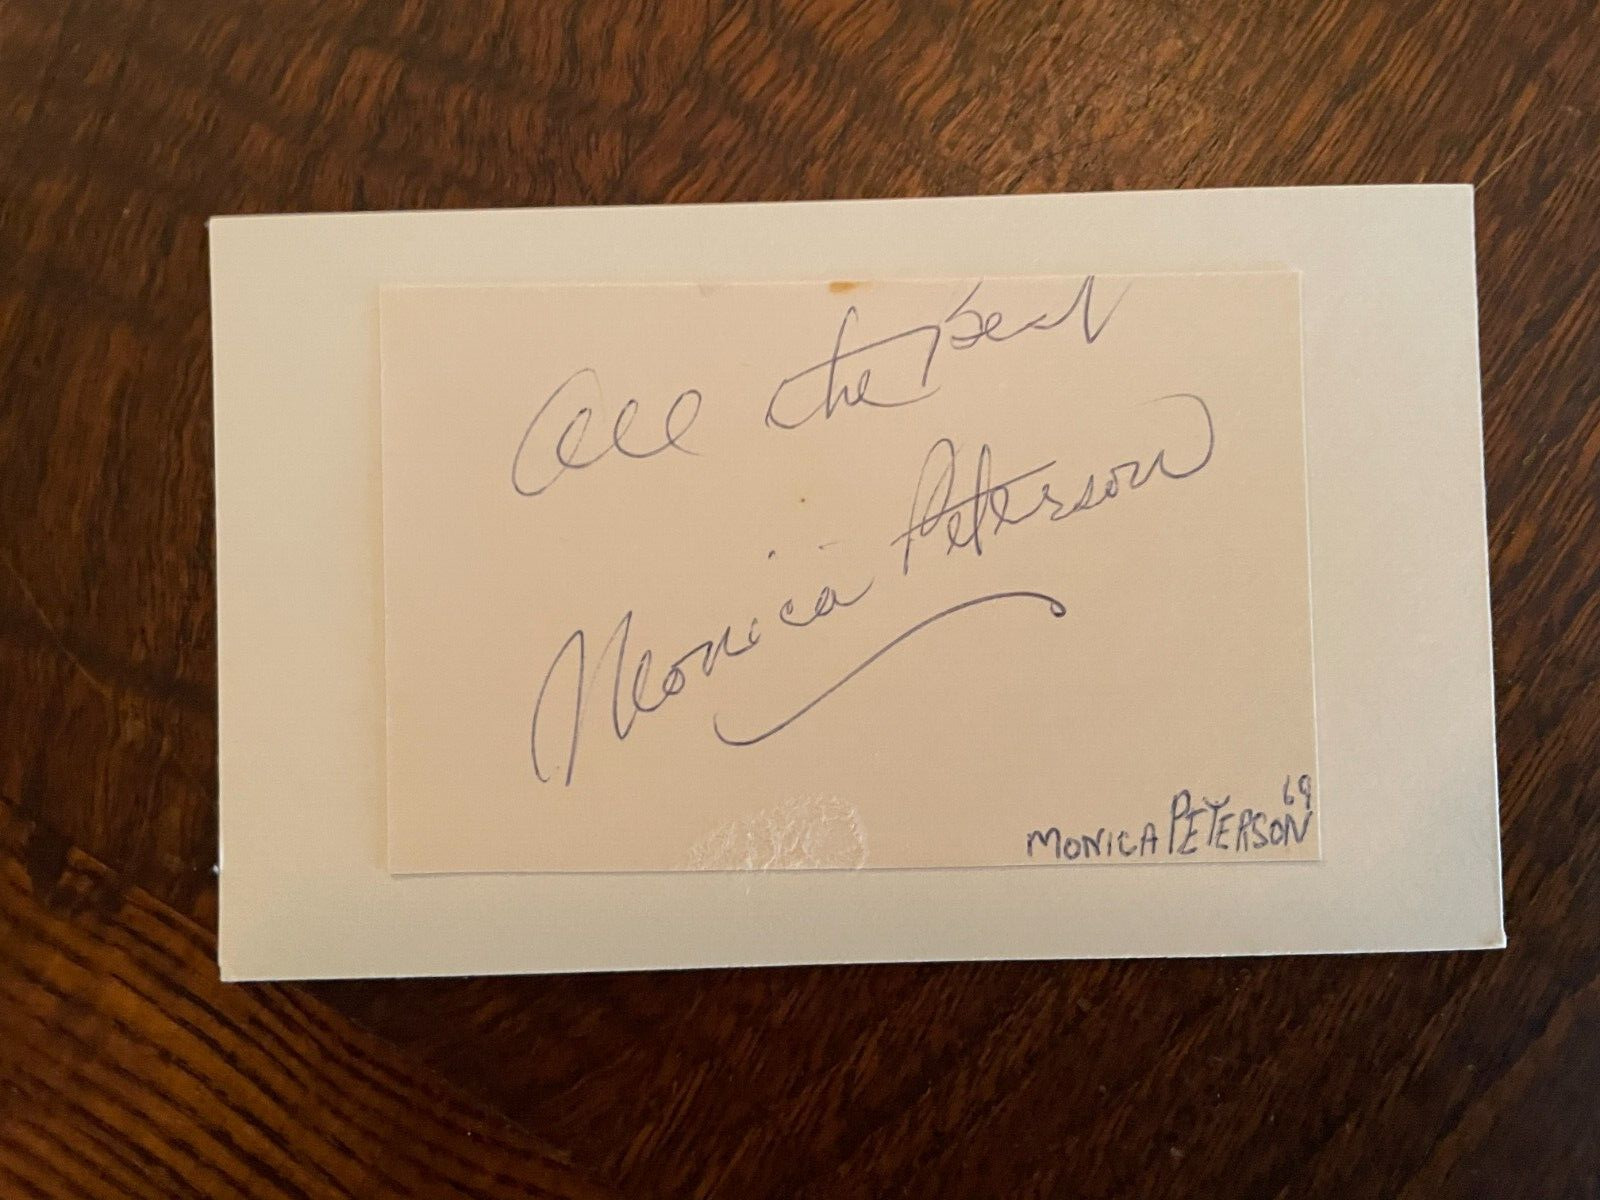 All the Best
Monica Peterson
69
MONICA PETERSON